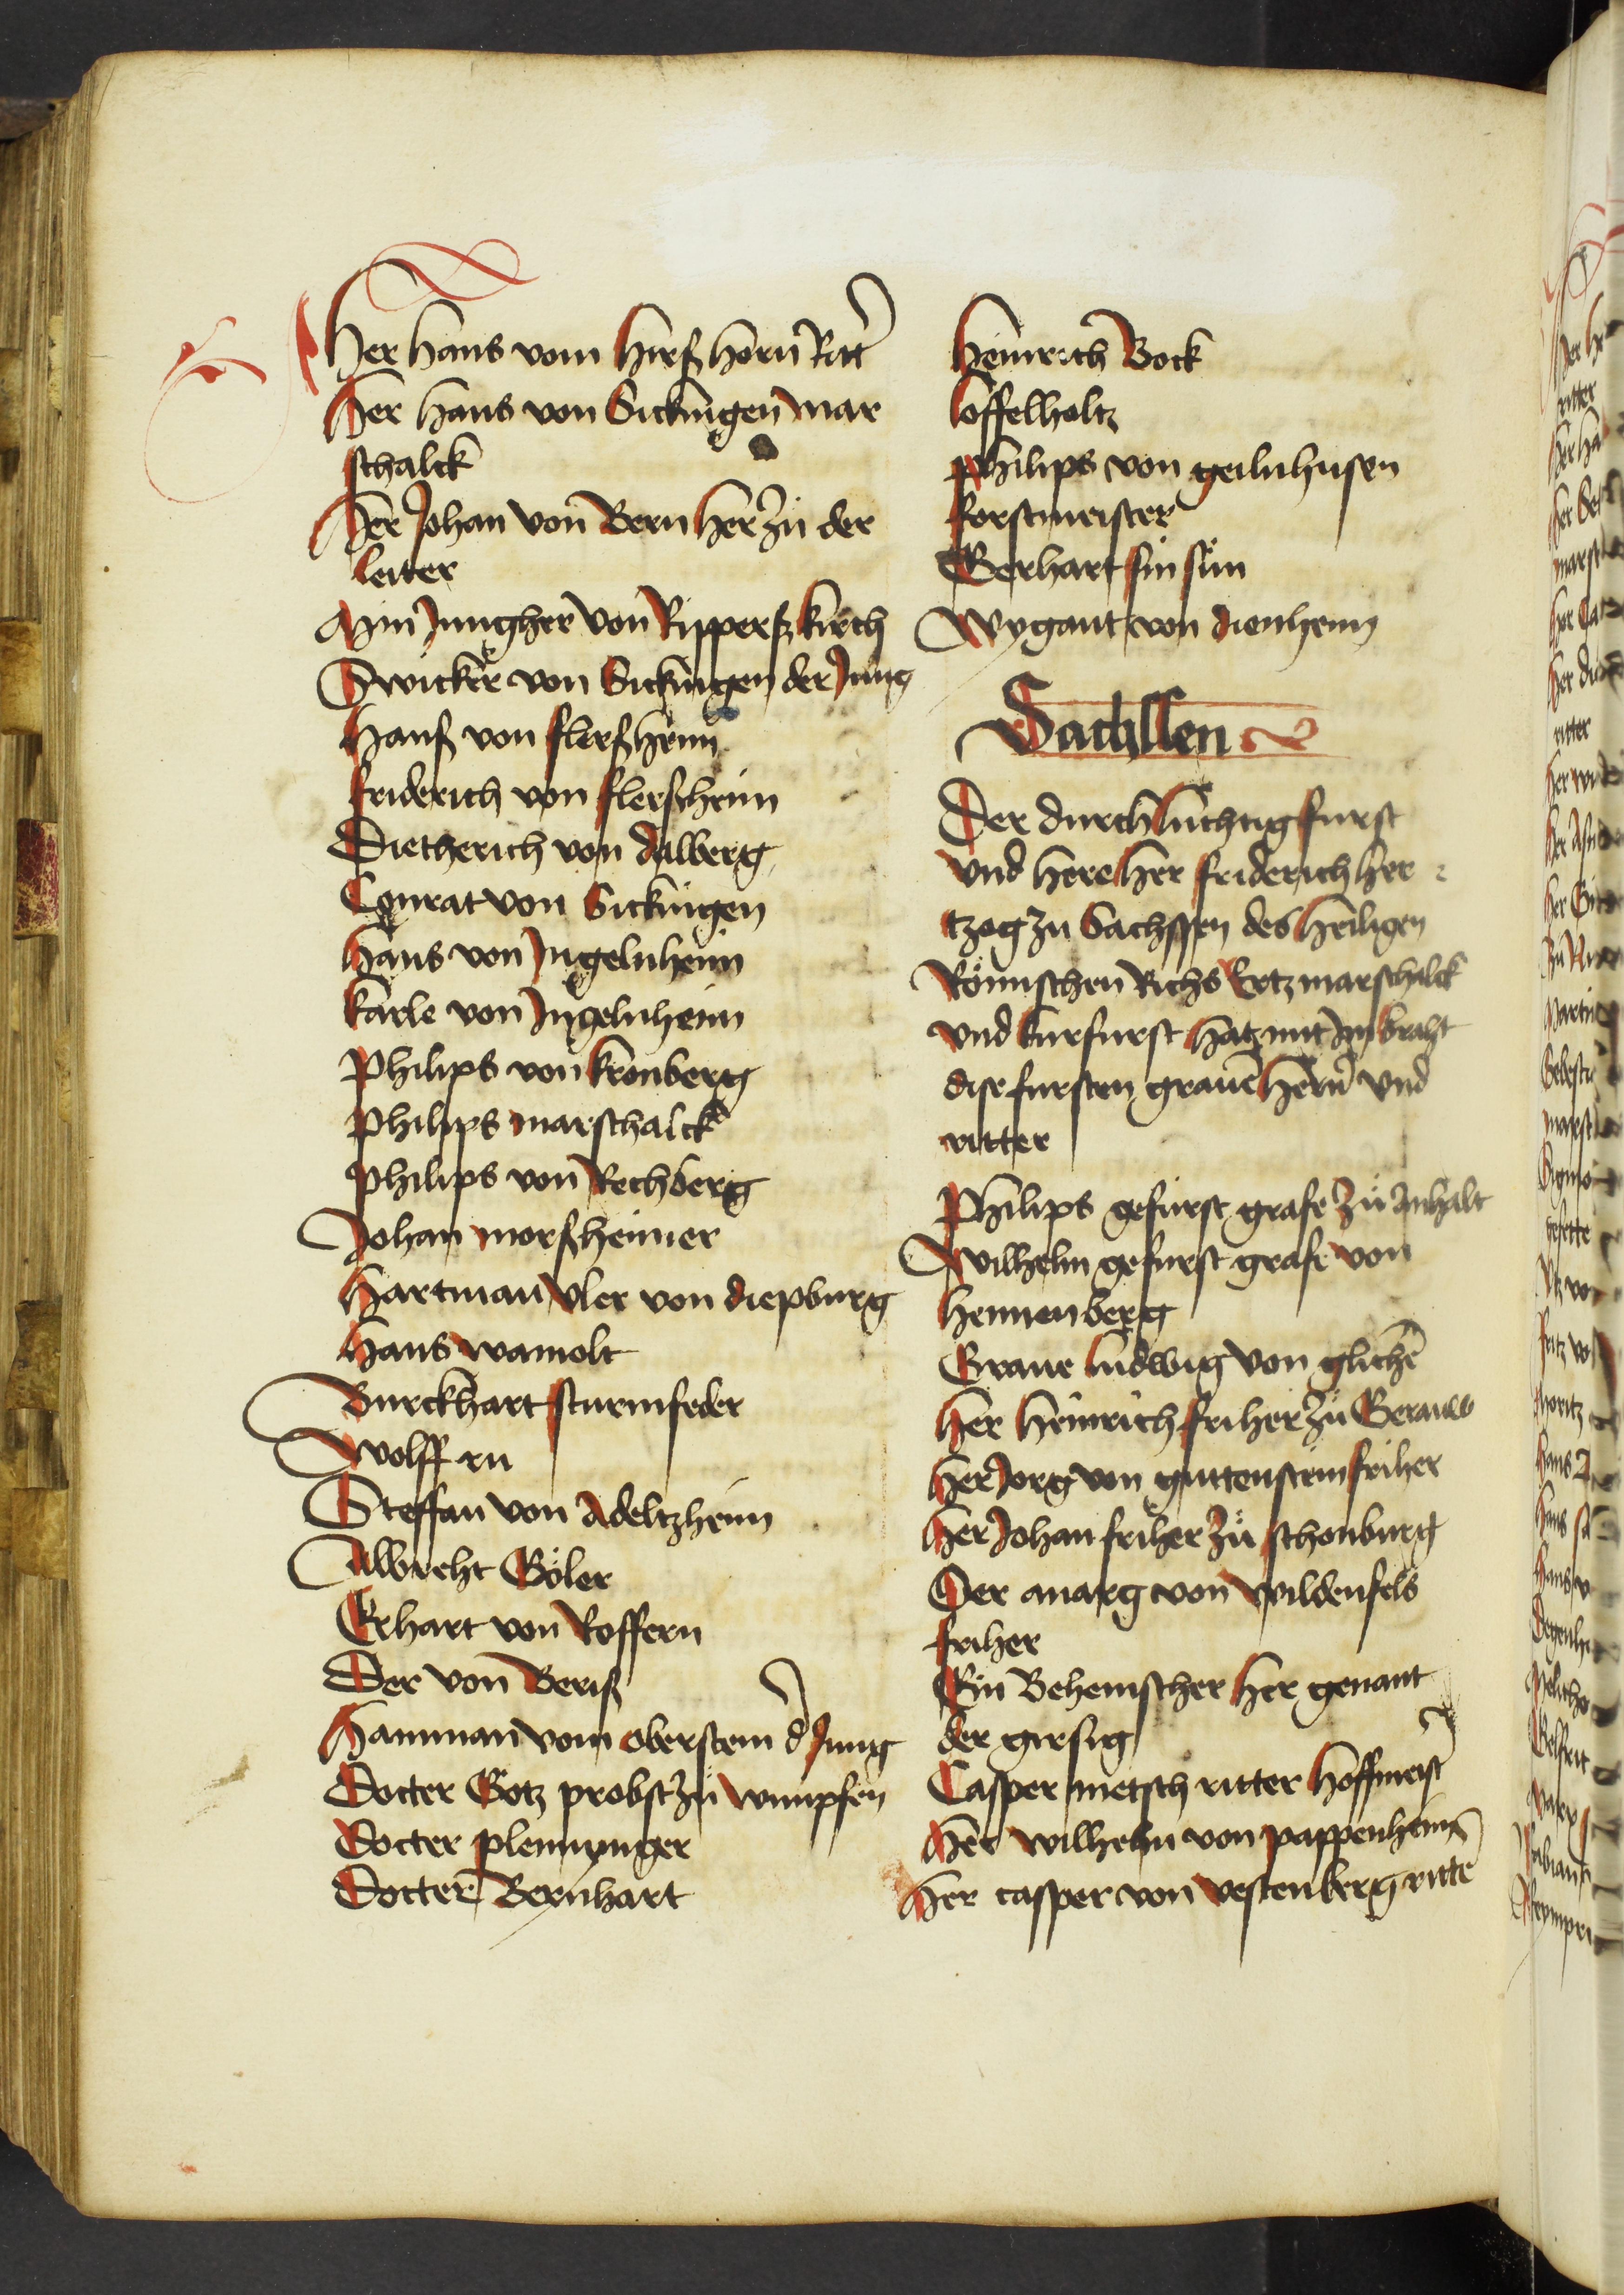 Her hans vom hirßhorn Ritt̄
Her Hans von Sickingen mar
schalck
Her Johan von Bern her zu der
leiter
Min Jungher von Rippertzkirch
Swicker von Sickingen der Jung
Hanß von flerßheim
friderich von flerscheim
Dietherich von dalberg
Conrat von Sickingen
Hans von Ingelnheim
karle von Ingelnheim
Philips von kronberg
Philips marschalck
Philips von Rechberg
Johan morßheimer
Hartman Vler von diepburg
Hans wamolt
Burckhart sturmfeder
Wolff
Steffan von Adeltzheim
Albreht Göler
Erhart von Rossern
Der von Beriß
Hamman vom oberstein d Jung
Docter Götz probst zu wimpfen
Docter plenninger
Docter Bernhart
Heinrich Bock
löffelholtz
Philips von geilnhusen
forstmeister
Gerhart sin sün
Wygant von dienheim
Sachssen
Der durchlüchtig furst
vnd here her friderich her
tzog zu Sachssen des heiligen
Römischen Richs Ertzmarschalck
vnd kurfurst hat mit Im braht
dise fursten graue hern vnd
ritter
Philips gefürst grafe zu Anhalt
Wilhelm gefurst grafe von
hennenberg
Graue ludwig von glichē
Her Heinrich friher zu Gerauw
Her Jorg von guttenstein friher
Her Johan friher zu schonburg
Der anarg von wildenfels
friher
Ein Behemscher her genant
der girsig
Casper metsch ritter hoffmeist̄
Her wilhelm von pappenheim
Her casper von vestenberg ritte